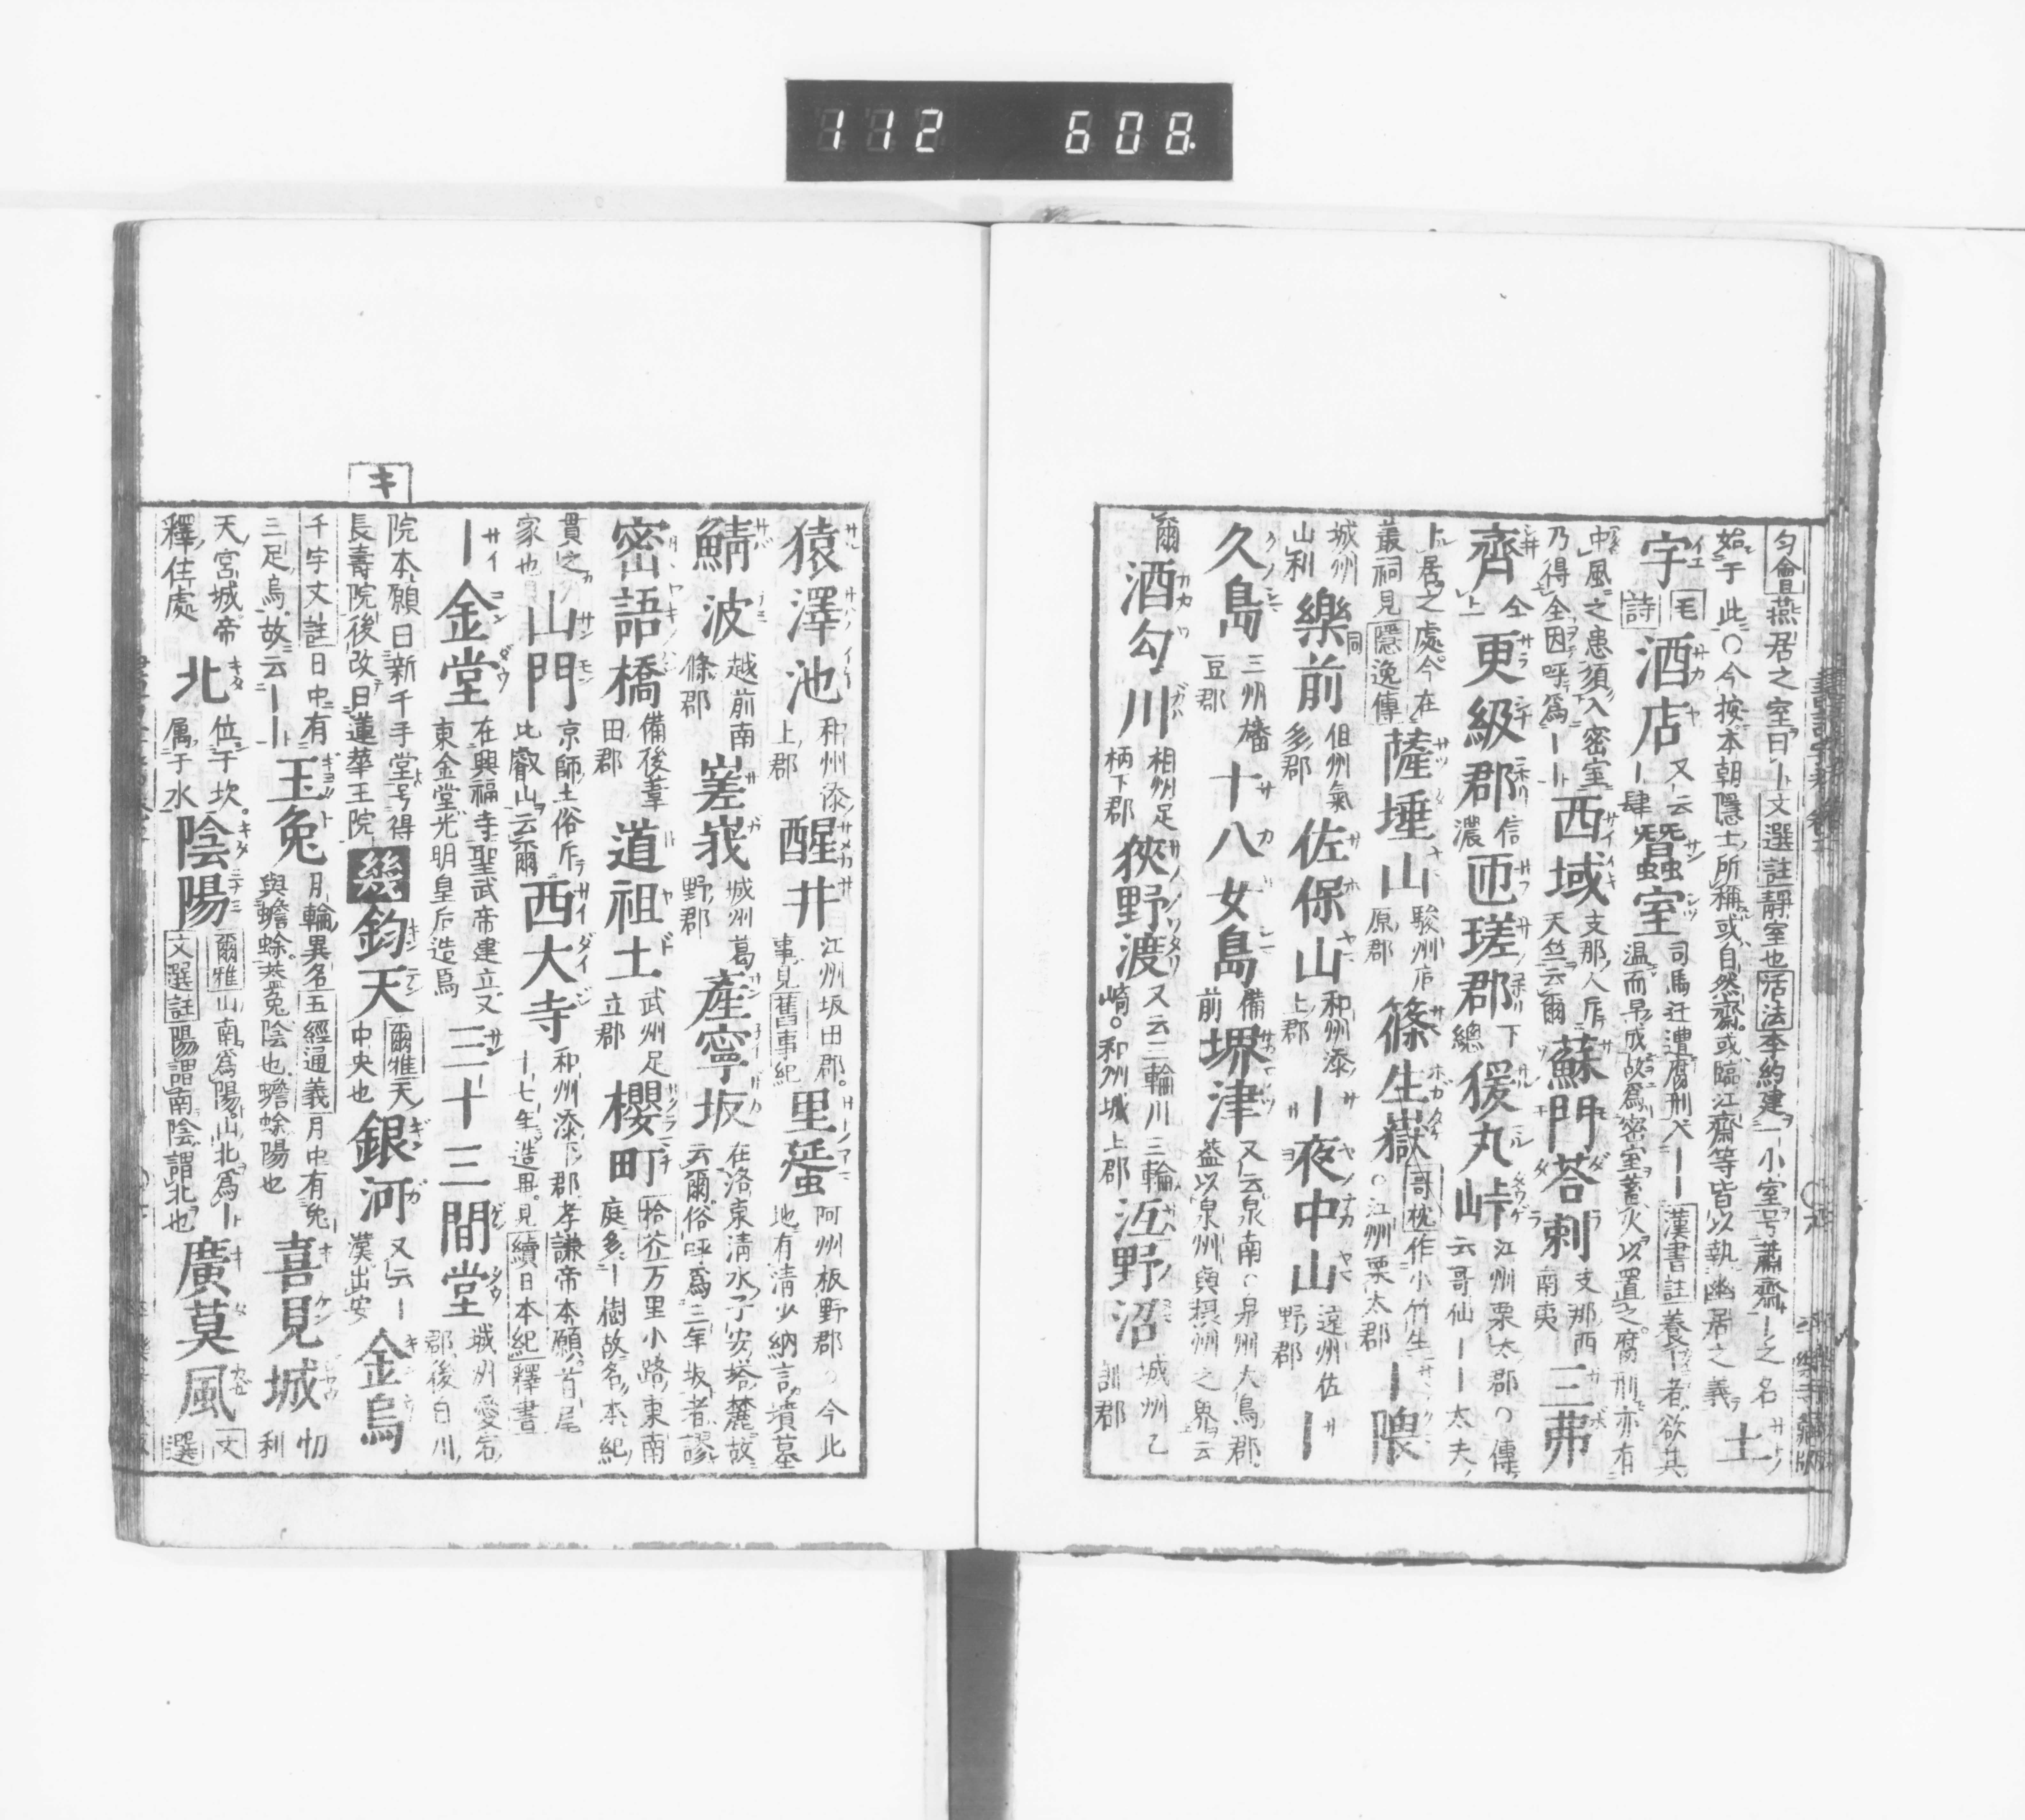 112 608
匀會燕居之室曰一文選註靜室也活法李約建一小室号蕭齋一之名
始于此○今按本朝隱士所稱或自然齋或臨江齋等皆以執幽居之義 士
宇 毛詩 酒店 又云一肆 蠶室 司馬迁遭腐刑入一一漢書註養一者欲其
温而早成故爲密室蓄火以置之腐刑亦有
中風之患須入密室
乃得全因呼爲一一 西域 支那人斥天竺云爾 蘇門荅刺 支那西南夷 三弗
齊 仝上 更級郡 信濃 匝瑳郡 下總 猨丸峠 江州栗太郡○傳云哥仙一一太夫
上居之處今在
叢祠見隱逸傳 薩埵山 駿州庵原郡 篠生嶽 哥枕作小竹生○江州栗太郡 一隈
城州山利 樂前 但州氣多郡 佐保山 和州添上郡 一夜中山 遠州佐野郡 一
久島 三州幡豆郡 十八女島 備前 堺津 又云泉南○泉州大鳥郡
蓋以泉州與摂州之界云
爾 酒匂川 相州足柄下郡 狹野渡 又云三輪川三輪崎○和州城上郡 沍野沼 城州乙訓郡
猿澤池 和州添上郡 醒井 江州坂田郡○事見舊事紀 里蜑 阿州板野郡○今此
地有清少納言墳墓
鯖波 越前南條郡 嵳峩 城州葛野郡 産寧坂 在洛東清水子安塔麓故
云爾俗呼爲三年坂者謬
密語橋 備後葦田郡 道祖土 武州足立郡 櫻町 拾芥万里小路東南
庭多一樹故名本紀
貫之家也 山門 京師土俗斥比叡山云爾 西大寺 和州添下郡孝謙帝本願首尾
一七年造畢見續日本紀釋書
一金堂 在興福寺聖武帝建立又
東金堂光明皇后造爲 三十三間堂 城州愛宕郡後白川
院本願曰新千手堂号得
長壽院後改曰蓮華王院
キ
幾 鈞天 爾雅天中央也 銀河 又云一漢出安 金烏
千字文註日中有
三足烏故云一一 玉兔 月輪異名五經通義月中有兔
與蟾蜍蓋兔陰也蟾蜍陽也 喜見城 忉利
天宮城帝
釋住處 北 位于坎属于水 陰陽 爾雅山南爲陽山北爲一
文選註陽謂南陰謂北也 廣莫風 文選